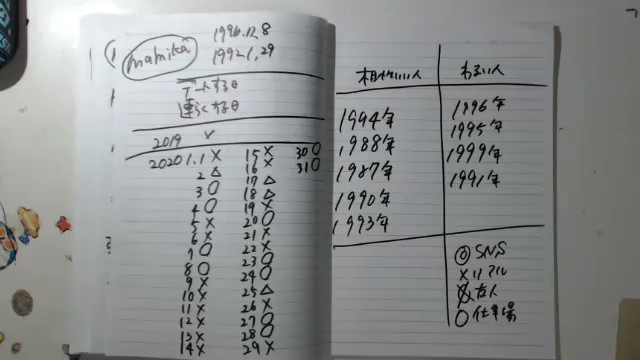 mamika
1996.12.8
1992.1.29
デートする日
連らくする日
2019 ×
2020 1.1 ×
2 △
3 ○
4 ○
5 ×
6 ×
7 ○
8 ○
9 ×
10 ×
11 ×
12 ×
13 ×
14 ×
15 ×
16 ×
17 △
18 △
19 ×
20 ○
21 ×
22 ×
23 ○
24 ○
25 △
26 ×
27 ○
28 ○
29 ×
30 ○
31 ○
相性いい人
1994年
1988年
1987年
1990年
1993年
わるい人
1996年
1995年
1999年
1991年
◎ SNS
× リアル
友人
○ 仕事場